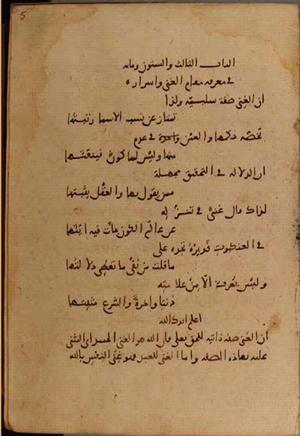 الباب الثالث والستون ومائة
في معرفة مقام الغنى واسراره
ان الغنى صفة سلبية ولذا
تمتاز عن نسب الاسما رتبتها
تخصه حكمها والعين واحدة في عزم
منها وليس لها كون فينعتها
ان الدلالة في التحقيق مجهلة
ممن يقول بها والعقل يثبتها
لذاك قال غنى في تنزله
عن عالم الكون جات فيه ايتها
في العنكبوت فدبره تجده على
ما قلت من نفى ما تعطى دلالتها
وليس يعرفه الا من علامته
دنيا واخرة والشرع مثبتها
اعلم ايدك الله
ان الغنى صفة ذاتية للحق تعلى فان الله هو الغنى الحميد اى المثنى
عليه بهذه الصفة واما الغنى للعبد فهو غنى النفس بالله